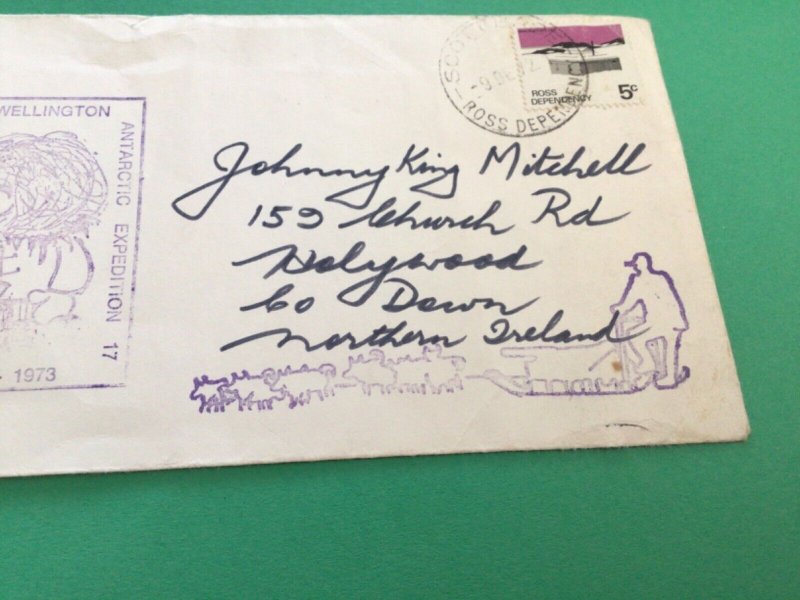 WELLINGTON
ANTARCTIC EXPEDITION 17
1973
ROSS DEPENDENCY
ROSS
DEPENDENCY
5c
Johnny King Mitchell
159 Church Rd
Holywood
Co Down
Northern Ireland